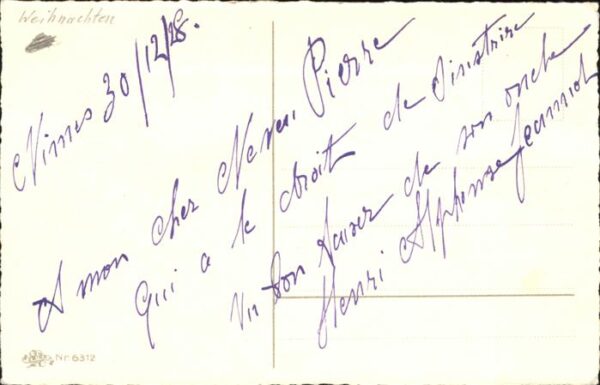 Weihnachten
Nimes 30/12/28.
A mon cher Neveu Pierre
qui a le droit de s'instruire
Un bon baiser de son oncle
Henri Alphonse Jeannot
Nr 6312